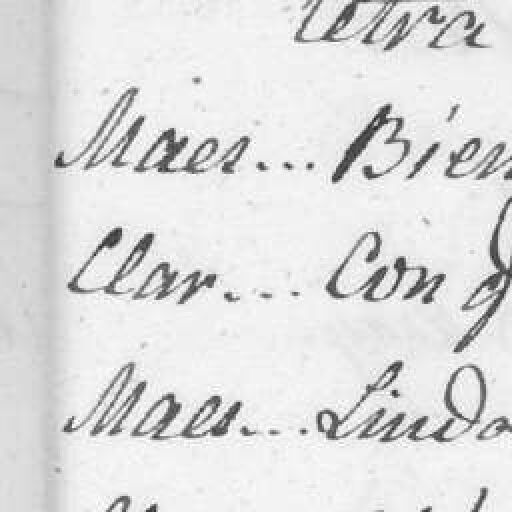 letra
Maes... Bien
Clar... Con q
Maes... Lindo